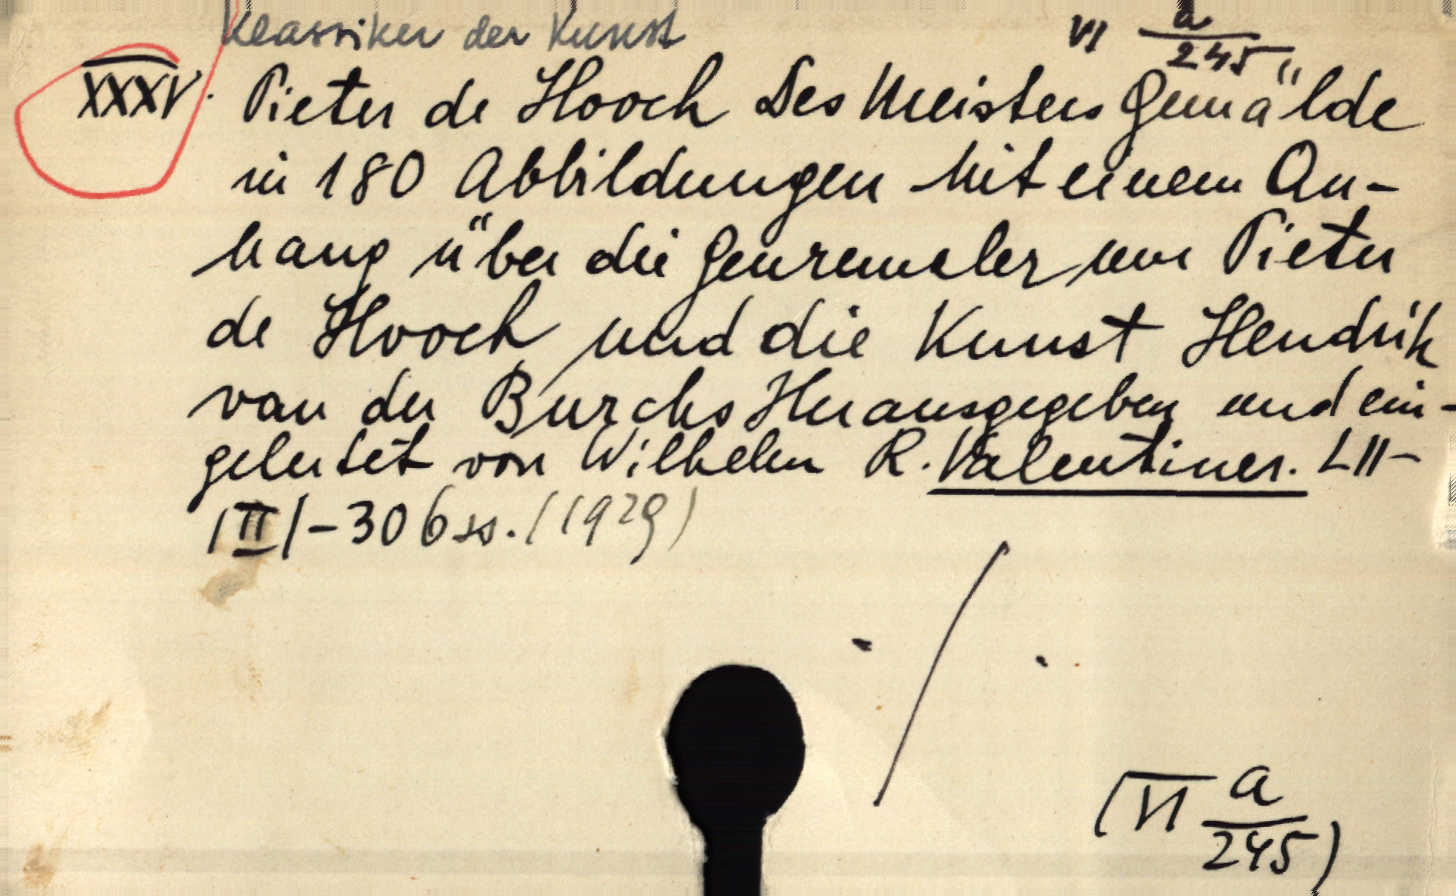 Klassiker der Kunst VI a/245
XXXV. Pieter de Hooch Des Meisters Gemälde
in 180 Abbildungen Mit einem An-
hang über die Genremaler um Pieter
de Hooch und die Kunst Hendrik
van der Burchs Herausgegeben und ein-
geleitet von Wilhelm R. Valentiner. LII-
/II/-306 ss. (1929)
(VI a/245)